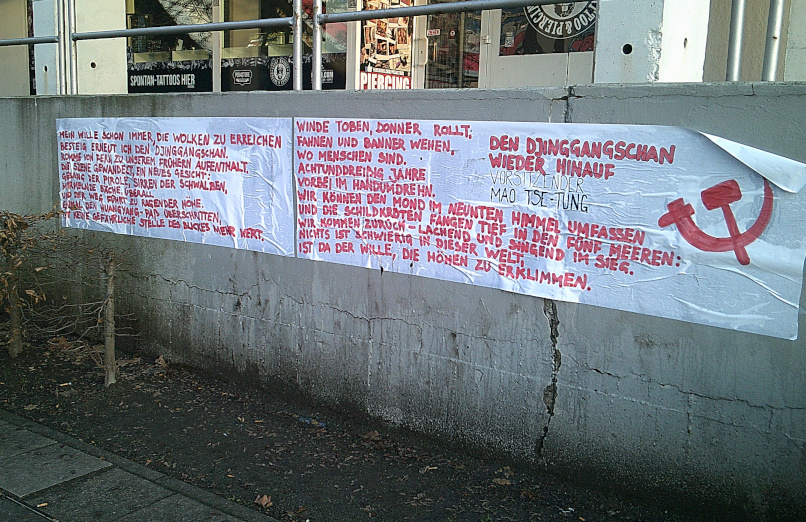 SPONTAN-TATTOOS HIER
PIERCING
TATTOO & PIERCING
MEIN WILLE SCHON IMMER, DIE WOLKEN ZU ERREICHEN
BESTEIG ERNEUT ICH DEN DJINGGANGSCHAN.
KOMME VON FERN ZU UNSEREM FRÜHERN AUFENTHALT.
DIE SZENE GEWANDELT, EIN NEUES GESICHT:
GESANG DER PIROLE, SIRREN DER SCHWALBEN,
BÄCHE, ÜBERALL.
UND DER WEG FÜHRT ZU RAGENDER HÖHE.
EINMAL DEN HUANGYANG-PAß ÜBERSCHRITTEN,
IST KEINE GEFÄHRLICHE STELLE DES BLICKES MEHR WERT.
WINDE TOBEN, DONNER ROLLT;
FAHNEN UND BANNER WEHEN,
WO MENSCHEN SIND.
ACHTUNDDREIßIG JAHRE
VORBEI IM HANDUMDREHN.
WIR KÖNNEN DEN MOND IM NEUNTEN HIMMEL UMFASSEN
UND DIE SCHILDKRÖTEN FANGEN TIEF IN DEN FÜNF MEEREN:
WIR KOMMEN ZURÜCK - LACHEND UND SINGEND IM SIEG.
NICHTS IST SCHWIERIG IN DIESER WELT;
IST DA DER WILLE, DIE HÖHEN ZU ERKLIMMEN.
DEN DJINGGANGSCHAN
WIEDER HINAUF
VORSITZENDER
MAO TSE-TUNG